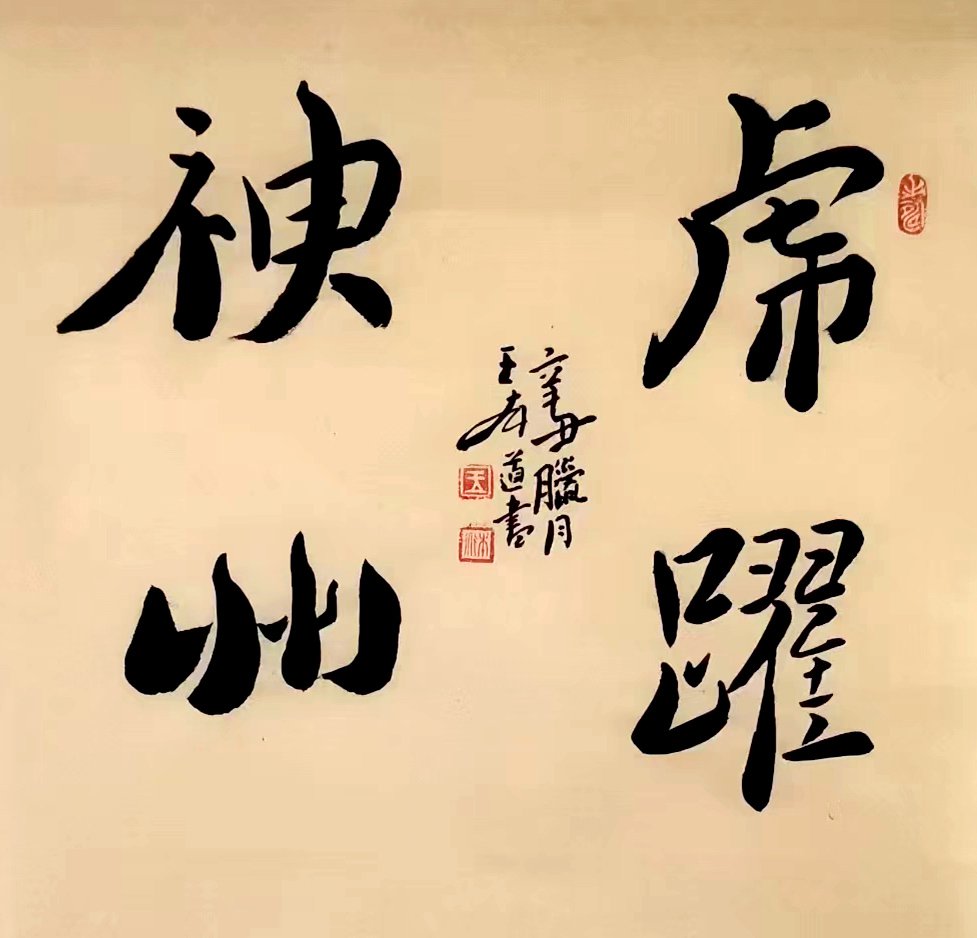 虎躍
神州
辛丑臘月
王本道書